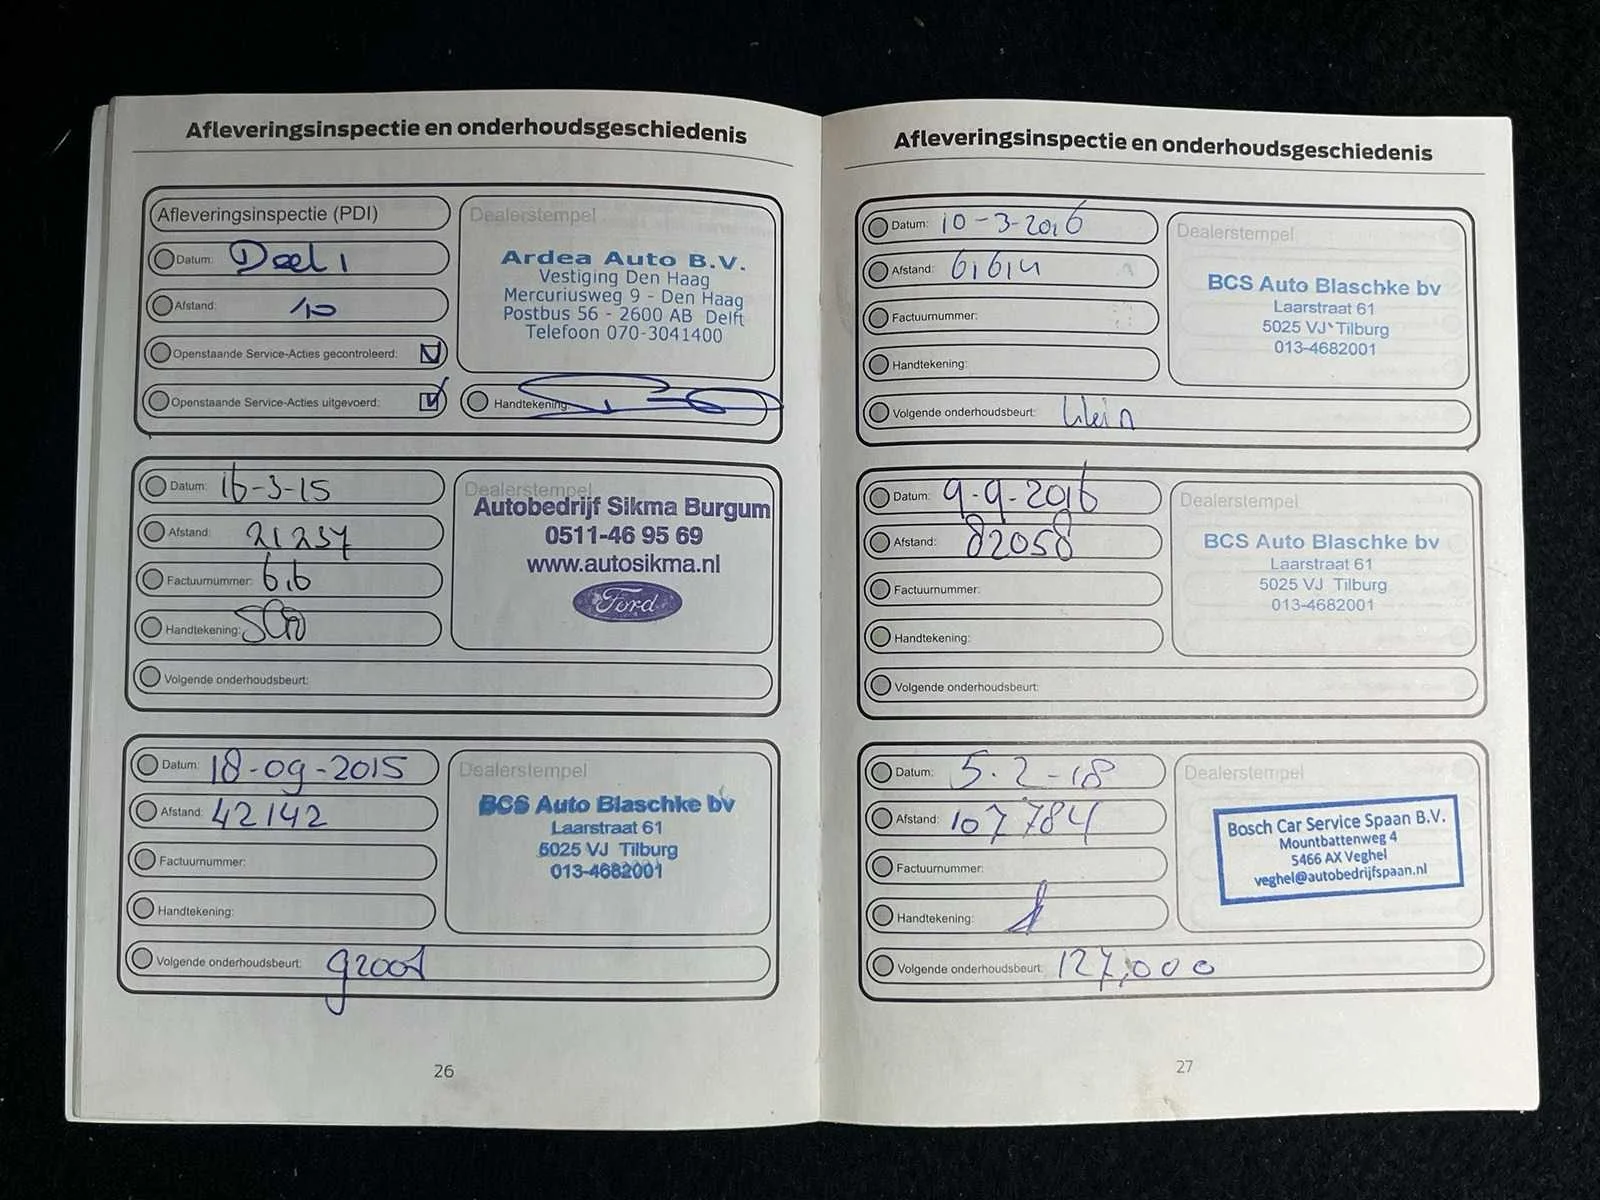 Afleveringsinspectie en onderhoudsgeschiedenis
Afleveringsinspectie (PDI)
Datum: Deel 1
Afstand: 10
Openstaande Service-Acties gecontroleerd:
Openstaande Service-Acties uitgevoerd:
Dealerstempel
Ardea Auto B.V.
Vestiging Den Haag
Mercuriusweg 9 - Den Haag
Postbus 56 - 2600 AB Delft
Telefoon 070-3041400
Handtekening:
Datum: 16-3-15
Afstand: 21237
Factuurnummer: 6,6
Handtekening:
Volgende onderhoudsbeurt:
Dealerstempel
Autobedrijf Sikma Burgum
0511-46 95 69
www.autosikma.nl
Ford
Datum: 18-09-2015
Afstand: 42142
Factuurnummer:
Handtekening:
Volgende onderhoudsbeurt: groot
Dealerstempel
BCS Auto Blaschke bv
Laarstraat 61
5025 VJ Tilburg
013-4682001
26
Afleveringsinspectie en onderhoudsgeschiedenis
Datum: 10-3-2016
Afstand:
Factuurnummer:
Handtekening:
Volgende onderhoudsbeurt: klein
Dealerstempel
BCS Auto Blaschke bv
Laarstraat 61
5025 VJ Tilburg
013-4682001
Datum: 9-9-2016
Afstand: 82058
Factuurnummer:
Handtekening:
Volgende onderhoudsbeurt:
Dealerstempel
BCS Auto Blaschke bv
Laarstraat 61
5025 VJ Tilburg
013-4682001
Datum: 5-2-18
Afstand: 107784
Factuurnummer:
Handtekening:
Volgende onderhoudsbeurt: 127,000
Dealerstempel
Bosch Car Service Spaan B.V.
Mountbattenweg 4
5466 AX Veghel
veghel@autobedrijfspaan.nl
27